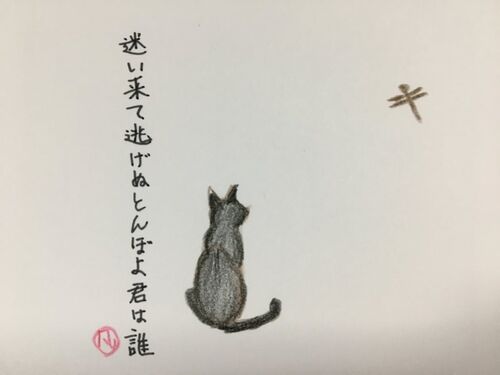 迷い来て逃げぬとんぼよ君は誰